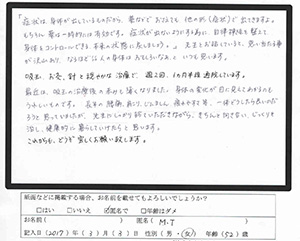 「症状」は身体が出しているものだから、薬などでおさえても、他の所(症状)で出てきますよ。
もちろん薬は一時的には有効です。症状が出ないようにする為に、自律神経を整えて
身体をコントロールできる本来の状態に戻しましょう。」先生とお話していると、思い当たる事
が沢山あり、なるほど！人の身体はおもしろいなあ、といつも思います。
吸玉、お灸、針と穏やかな治療で、週2回、1ヶ月半程通院しています。
最近は、吸玉の治療後の赤みも薄くなりました。身体の変化が目に見えてわかるのも
うれしいものです。長年の頭痛、肩こり、じんましん、疲れやすさ等、一体どうしたら良いのだ
ろうと思っていましたが、先生にしっかり診ていただきながら、きちんと向き合い、じっくりと
治し、健康的に暮らしていけたらと思います。
これからも、どうぞ宜しくお願い致します。
紙面などに掲載する場合、お名前を載せてもよろしいでしょうか？
□はい □いいえ ☑匿名で □年齢はダメ
お名前 M.T
記入日(2017)年(3)月(3)日 性別(男・女) 年齢(52)歳